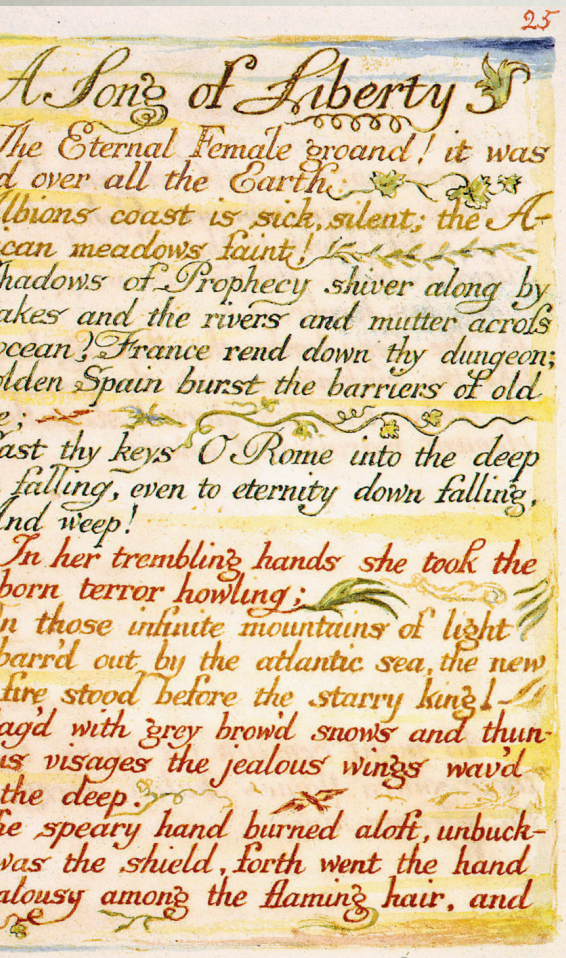 25
A Song of Liberty
The Eternal Female groand! it was
d over all the Earth:
lbions coast is sick, silent; the A-
ican meadows faint!
hadows of Prophecy shiver along by
akes and the rivers and mutter across
ocean? France rend down thy dungeon;
olden Spain burst the barriers of old
e;
ast thy keys O Rome into the deep
falling, even to eternity down falling,
And weep!
In her trembling hands she took the
born terror howling;
n those infinite mountains of light
barr'd out by the atlantic sea, the new
fire stood before the starry king!
ag'd with grey brow'd snows and thun-
us visages the jealous wings wav'd
the deep.
he speary hand burned aloft, unbuck-
was the shield, forth went the hand
alousy among the flaming hair, and